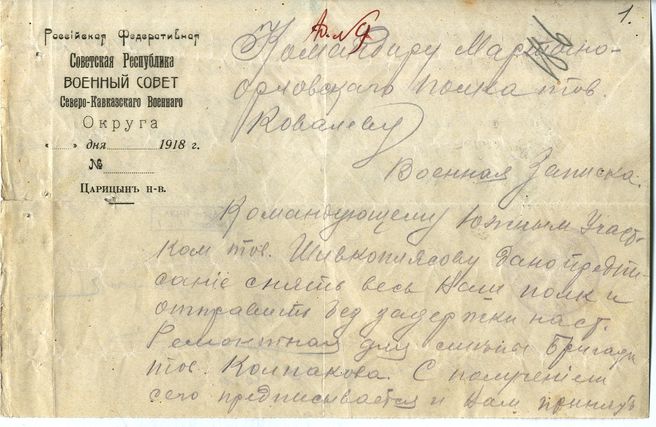 1.
Россійская Федеративная
Советская Республика
ВОЕННЫЙ СОВЕТ
Северо-Кавказскаго Военнаго
Округа
«......» дня ............ 1918 г.
№
Царицынъ н-в.
Командиру Мартыно-
орловского полка тов.
Ковалеву
Военная Записка.
Командующему Южным Участ-
ком тов. Шивкоплясову Дано предпи-
сание снять весь Ваш полк и
отправить без задержки на ст.
Ремонтная для смены Бригады
тов. Колпакова. С получением
сего предписывается и Вам принять